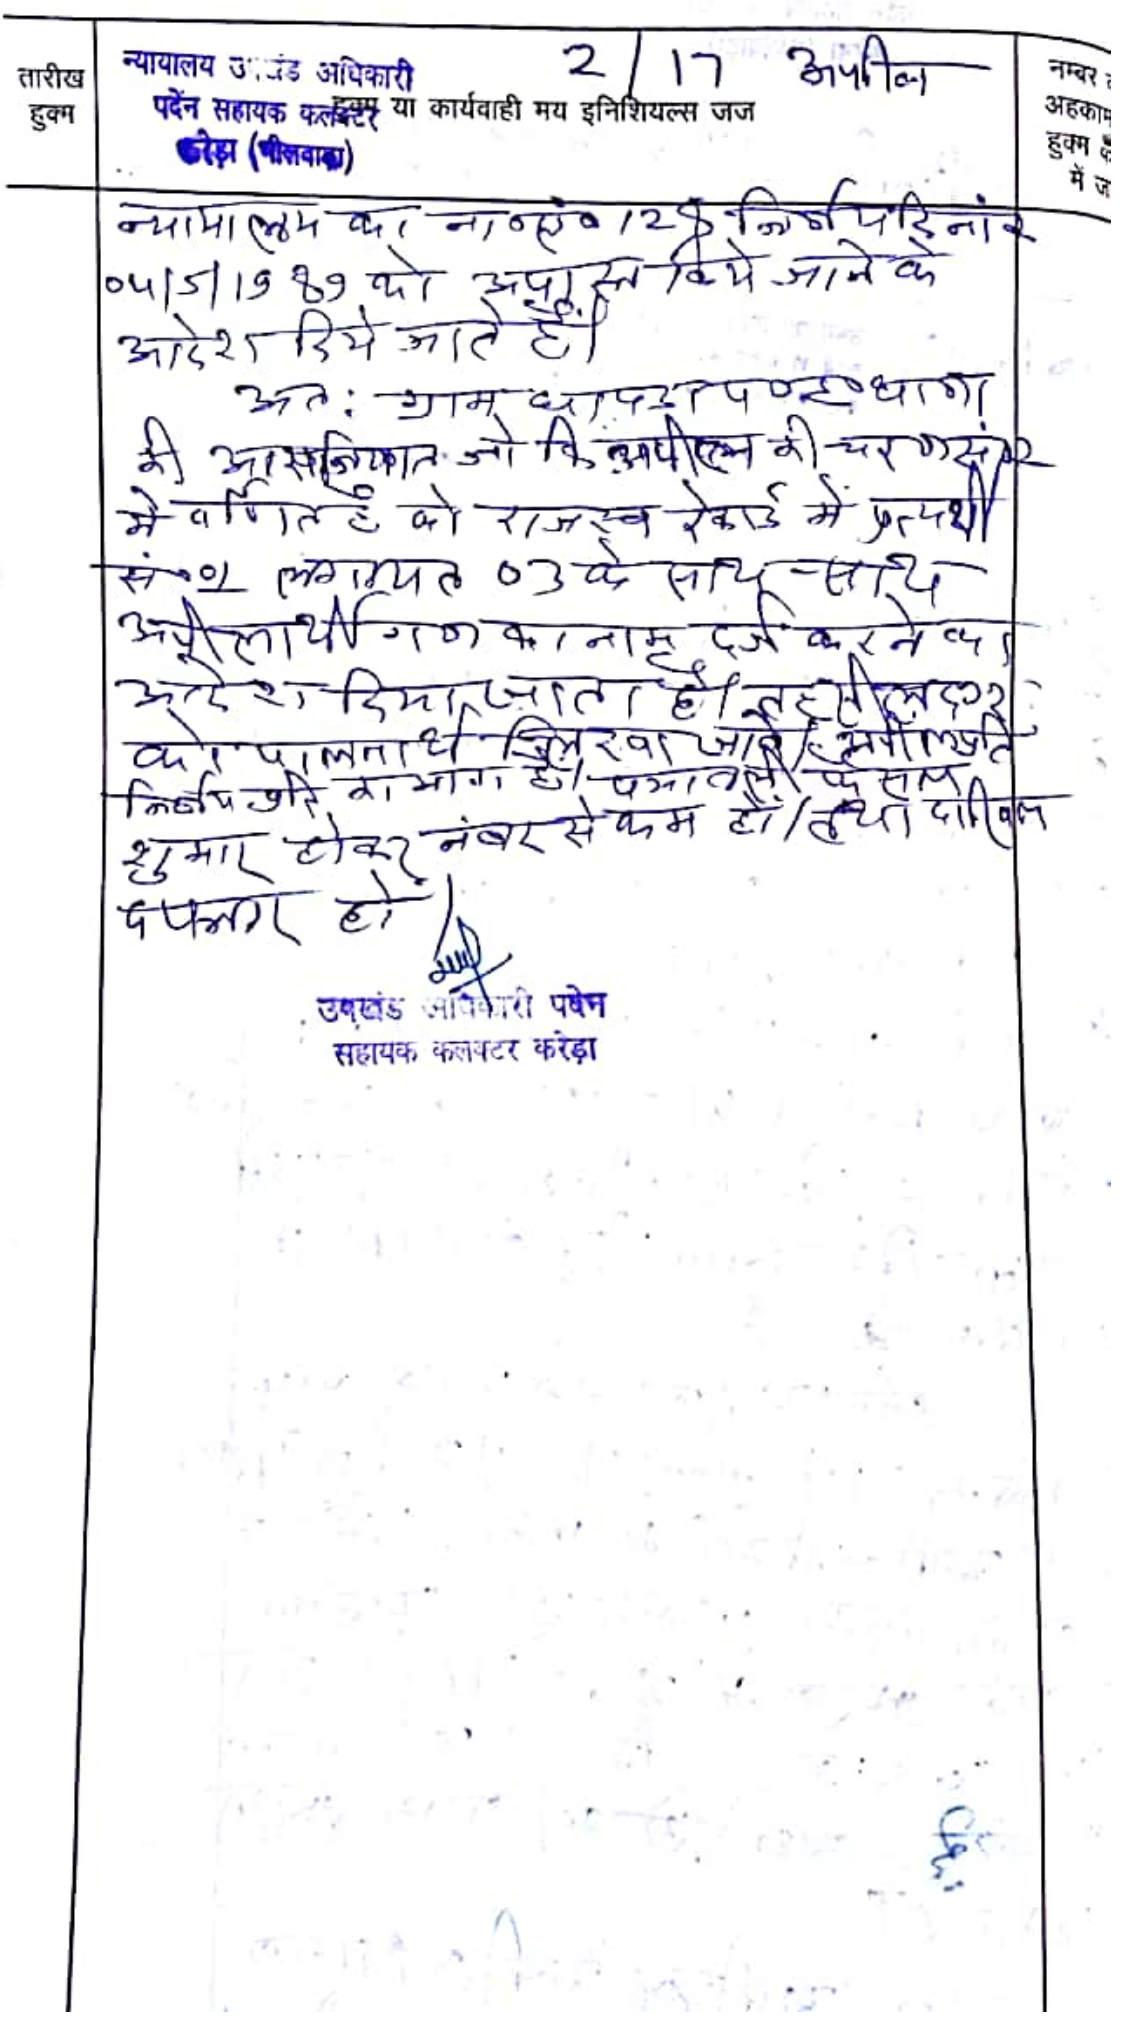 तारीख हुक्म
न्यायालय उ खंड अधिकारी
पदेन सहायक कलक्टर
करेड़ा (भीलवाड़ा)
2/17 अपील
हुक्म या कार्यवाही मय इनिशियल्स जज
नम्बर
अहकाम
हुक्म
में ज
न्यायालय का ना०सं० 128 निर्णय दिनांक
04/5/1989 को अपास्त किये जाने के
आदेश दिये जाते हैं।
अतः ग्राम प०ह० थाणा
की आराजियात जो कि अपील की चरण सं०2
में वर्णित है को राजस्व रेकार्ड में प्रत्यर्थी
सं०01 लगायत 03 के साथ-साथ
अपीलार्थीगण का नाम दर्ज करने का
आदेश दिया जाता है। तहसीलदार
को पालनार्थ लिखा जावे।
निर्णय का भाग है। पत्रावली
शुमार होकर नंबर से कम हो। तथा दाखिल
दफ्तर हो।
उपखंड अधिकारी पदेन
सहायक कलक्टर करेड़ा